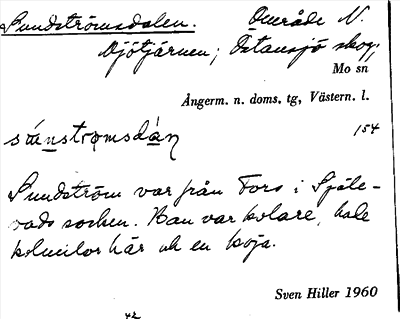 Sundströmsdalen. Område N.
Djötjärnen; Östansjö skog,
Mo sn
Ångerm. n. doms. tg, Västern. l.
154
Sundström var från Fors i Själe-
vads socken. Han var kolare, hade
kolmilor här och en koja.
Sven Hiller 1960
42